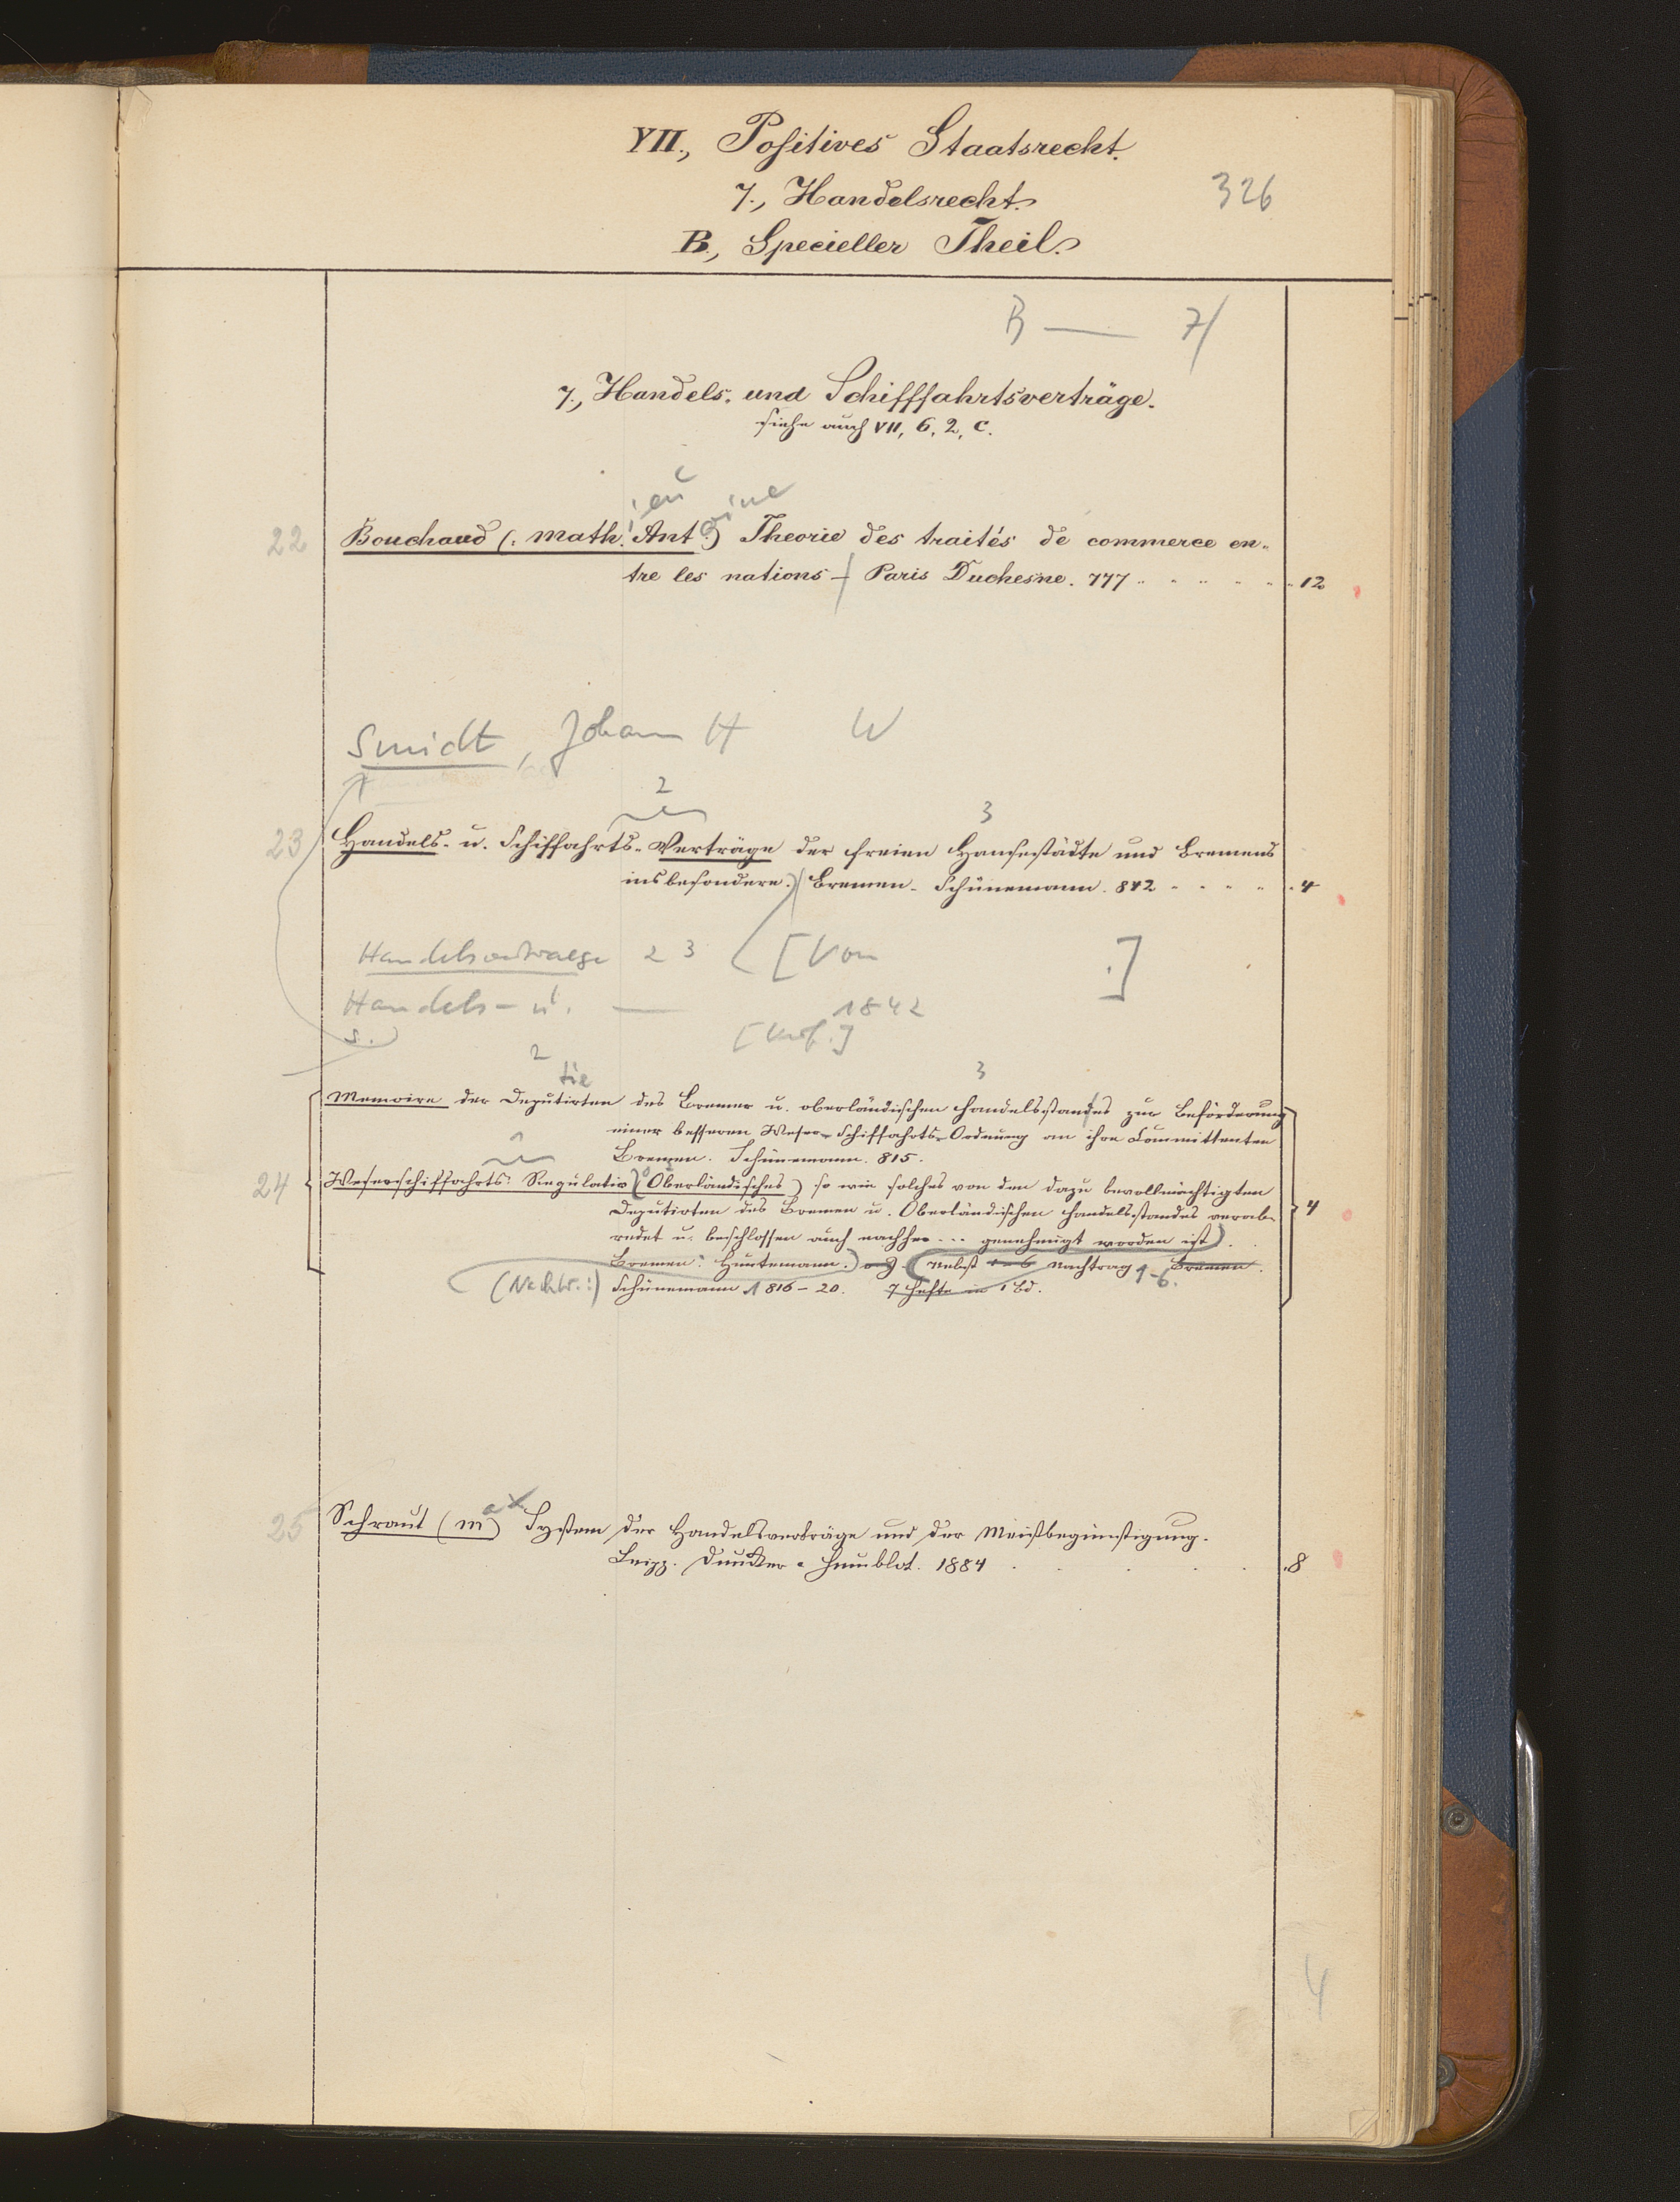 VII., Positives Staatsrecht.
7., Handelsrecht.
326
B., Specieller Theil.
B — 7/
7., Handels- und Schifffahrtsverträge.
siehe auch VII, 6, 2, C.
ieu oine
22 Bouchaud (: Math. Ant.) Theorie des traités de commerce en-
tre les nations Paris Duchesne. 777 12
Smidt, Johann H W
2 3
23 Handels- u. Schiffahrts-Verträge der freien Hansestädte und Bremens
insbesondere.) Bremen. Schünemann. 842 4
Handelsvertraege 2 3 [Von .]
Handels- u. — 1842
s. [Verf.]
2 tie 3
Memoire der Deputirten des Bremer u. oberländischen Handelsstandes zur Beförderung
einer besseren Weser-Schiffahrts-Ordnung an ihre Committenten
Bremen. Schünemann. 815.
1
24 Weserschiffahrts-Regulativ (Oberländisches) so wie solches von den dazu bevollmächtigten
Deputirten des Bremer u. Oberländischen Handelsstandes verab- 4
redet u. beschlossen auch nachher ... genehmigt worden ist).
Bremen. Huntemann.) (nebst 1-6 Nachtrag 1-6. Bremen.
(Nachtr.:) Schünemann 1816-20. 7 Hefte in 1 Bd.
ax
25 Schraut (M) System der Handelsverträge und der Meistbegünstigung.
Leipz. Duncker & Humblot. 1884 8
4